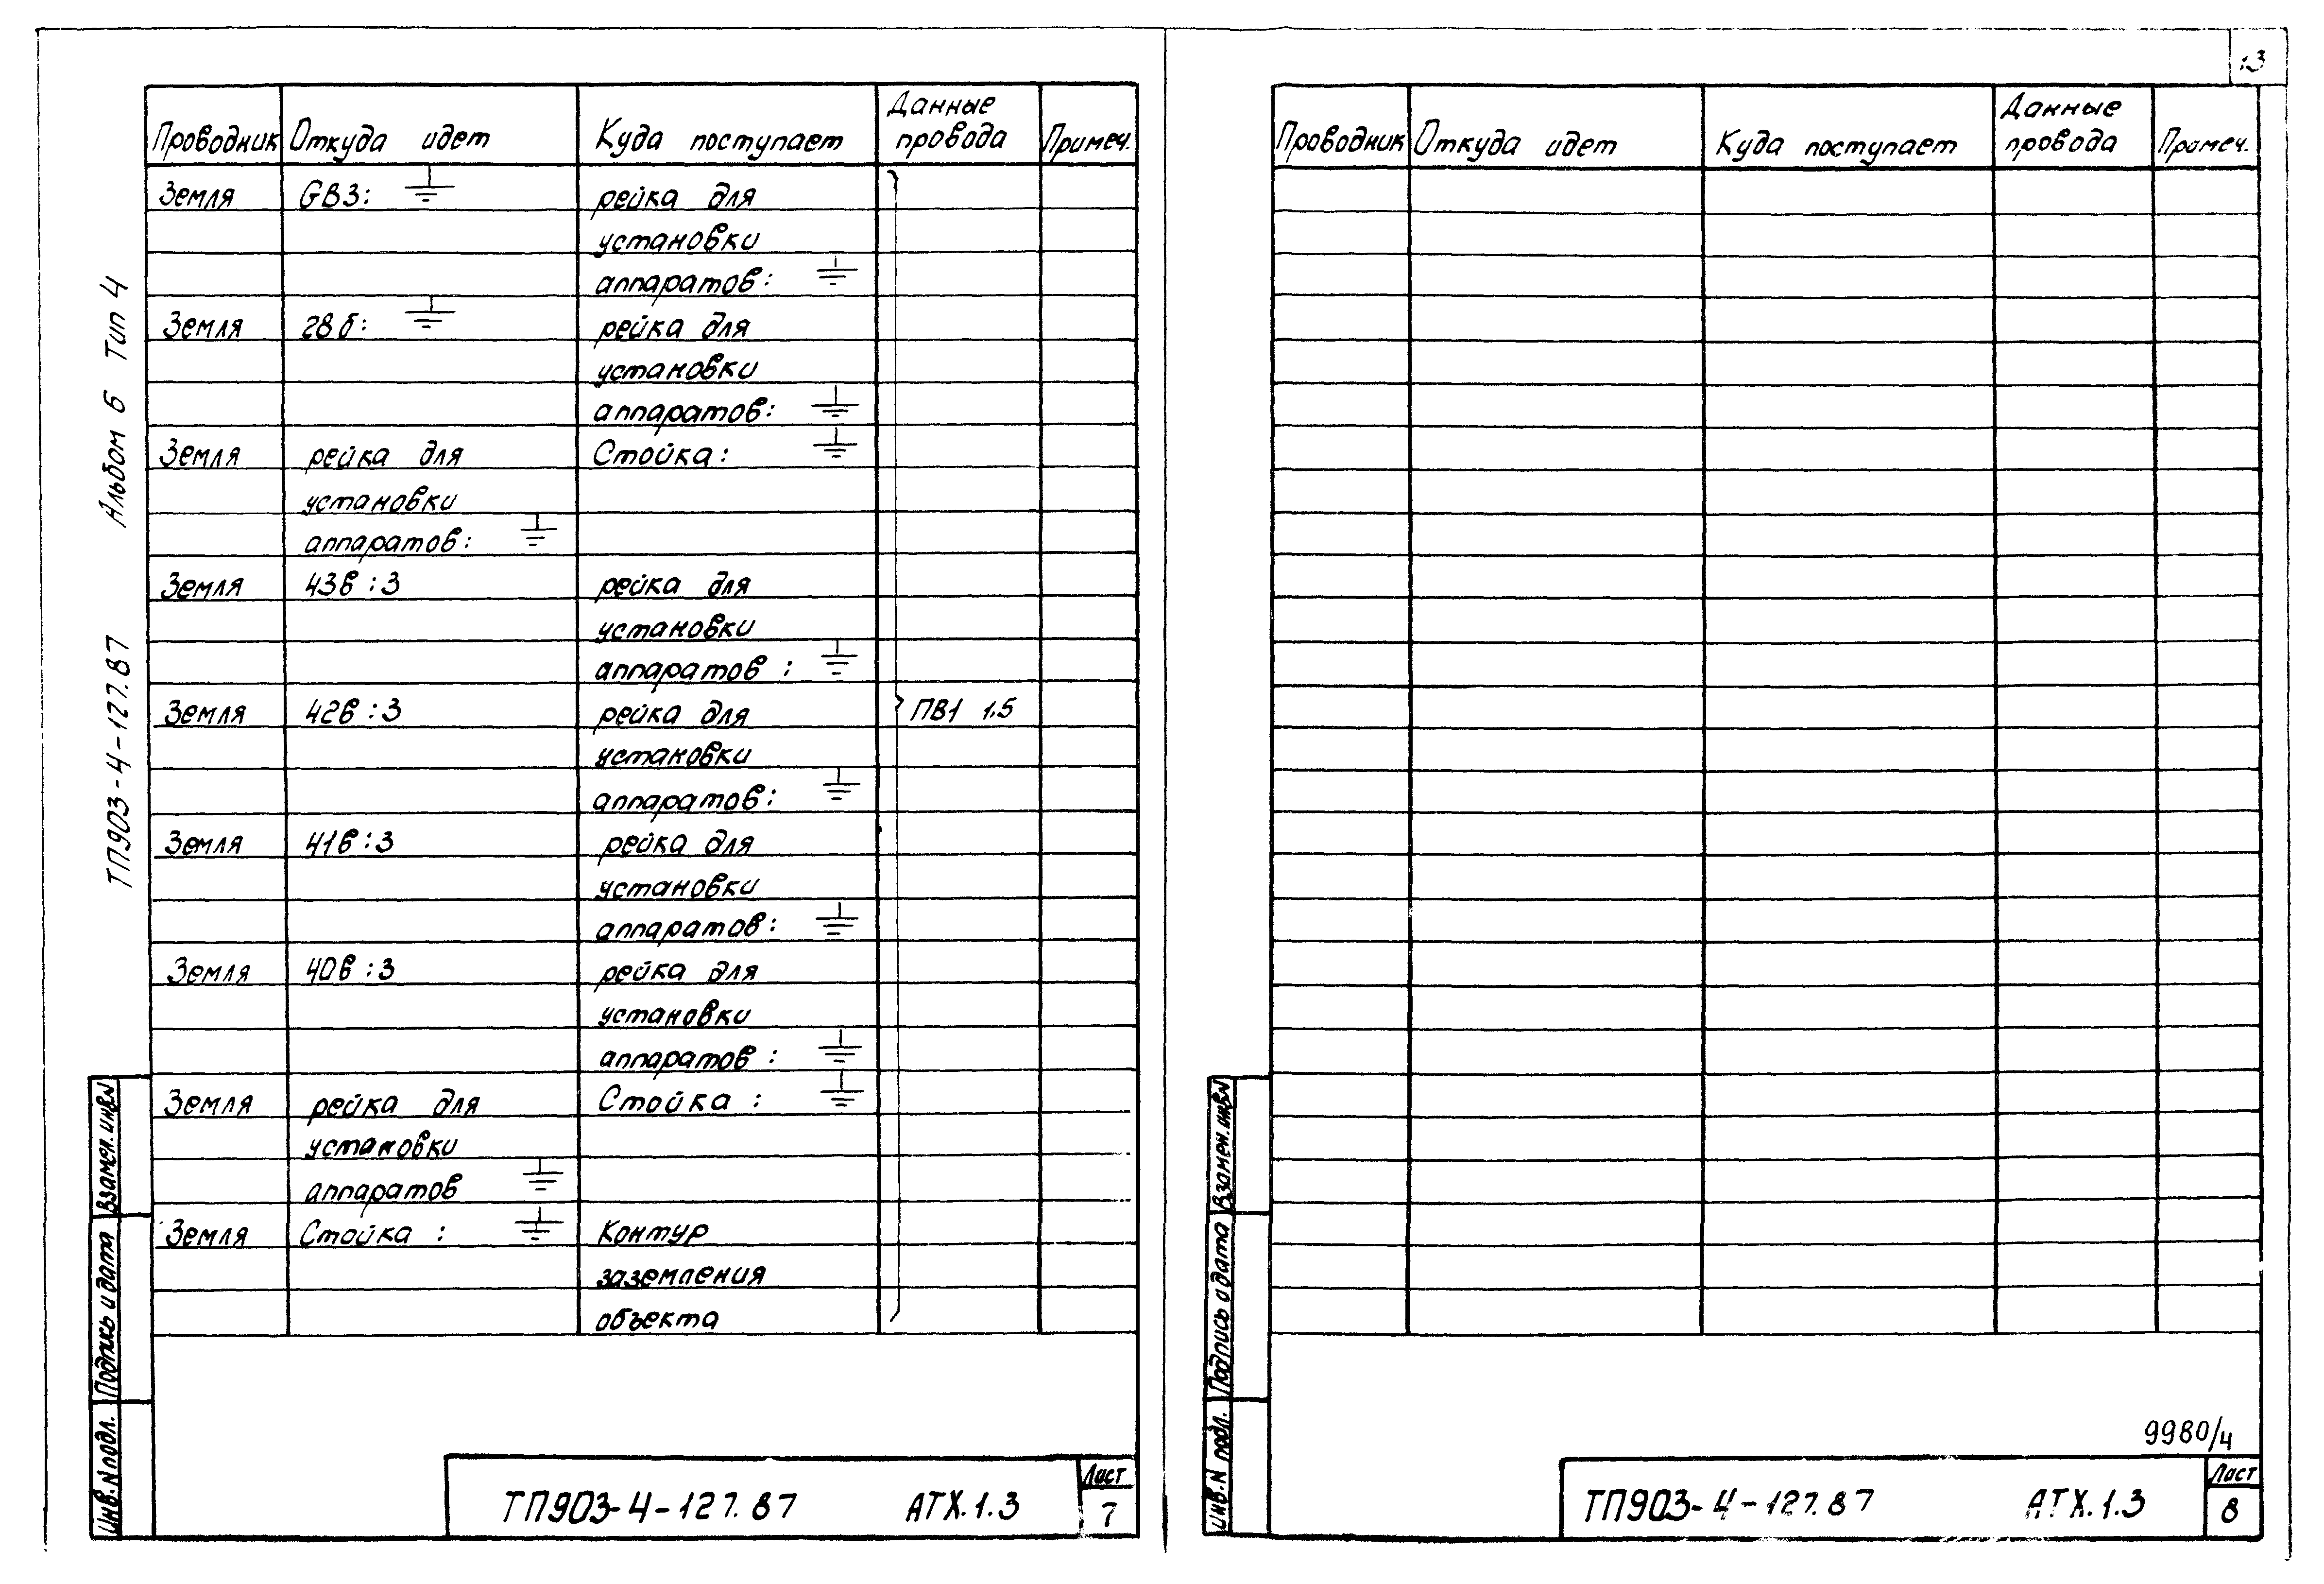 Альбом 6 Тип 4
ТП903-4-127.87
Проводник Откуда идет Куда поступает Данные провода Примеч.
Земля GB3: ⏚ рейка для
установки
аппаратов: ⏚
Земля 28б: ⏚ рейка для
установки
аппаратов: ⏚
Земля рейка для Стойка: ⏚
установки
аппаратов: ⏚
Земля 43в:3 рейка для
установки
аппаратов: ⏚
Земля 42в:3 рейка для ПВ1 1.5
установки
аппаратов: ⏚
Земля 41в:3 рейка для
установки
аппаратов: ⏚
Земля 40в:3 рейка для
установки
аппаратов: ⏚
Земля рейка для Стойка: ⏚
установки
аппаратов ⏚
Земля Стойка: ⏚ Контур
заземления
объекта
Инв.N подл. Подпись и дата Взамен.инв.N
ТП903-4-127.87 АТХ.1.3
Лист
7
Проводник Откуда идет Куда поступает Данные провода Примеч.
Инв.N подл. Подпись и дата Взамен.инв.N
9980/4
ТП903-4-127.87 АТХ.1.3
Лист
8